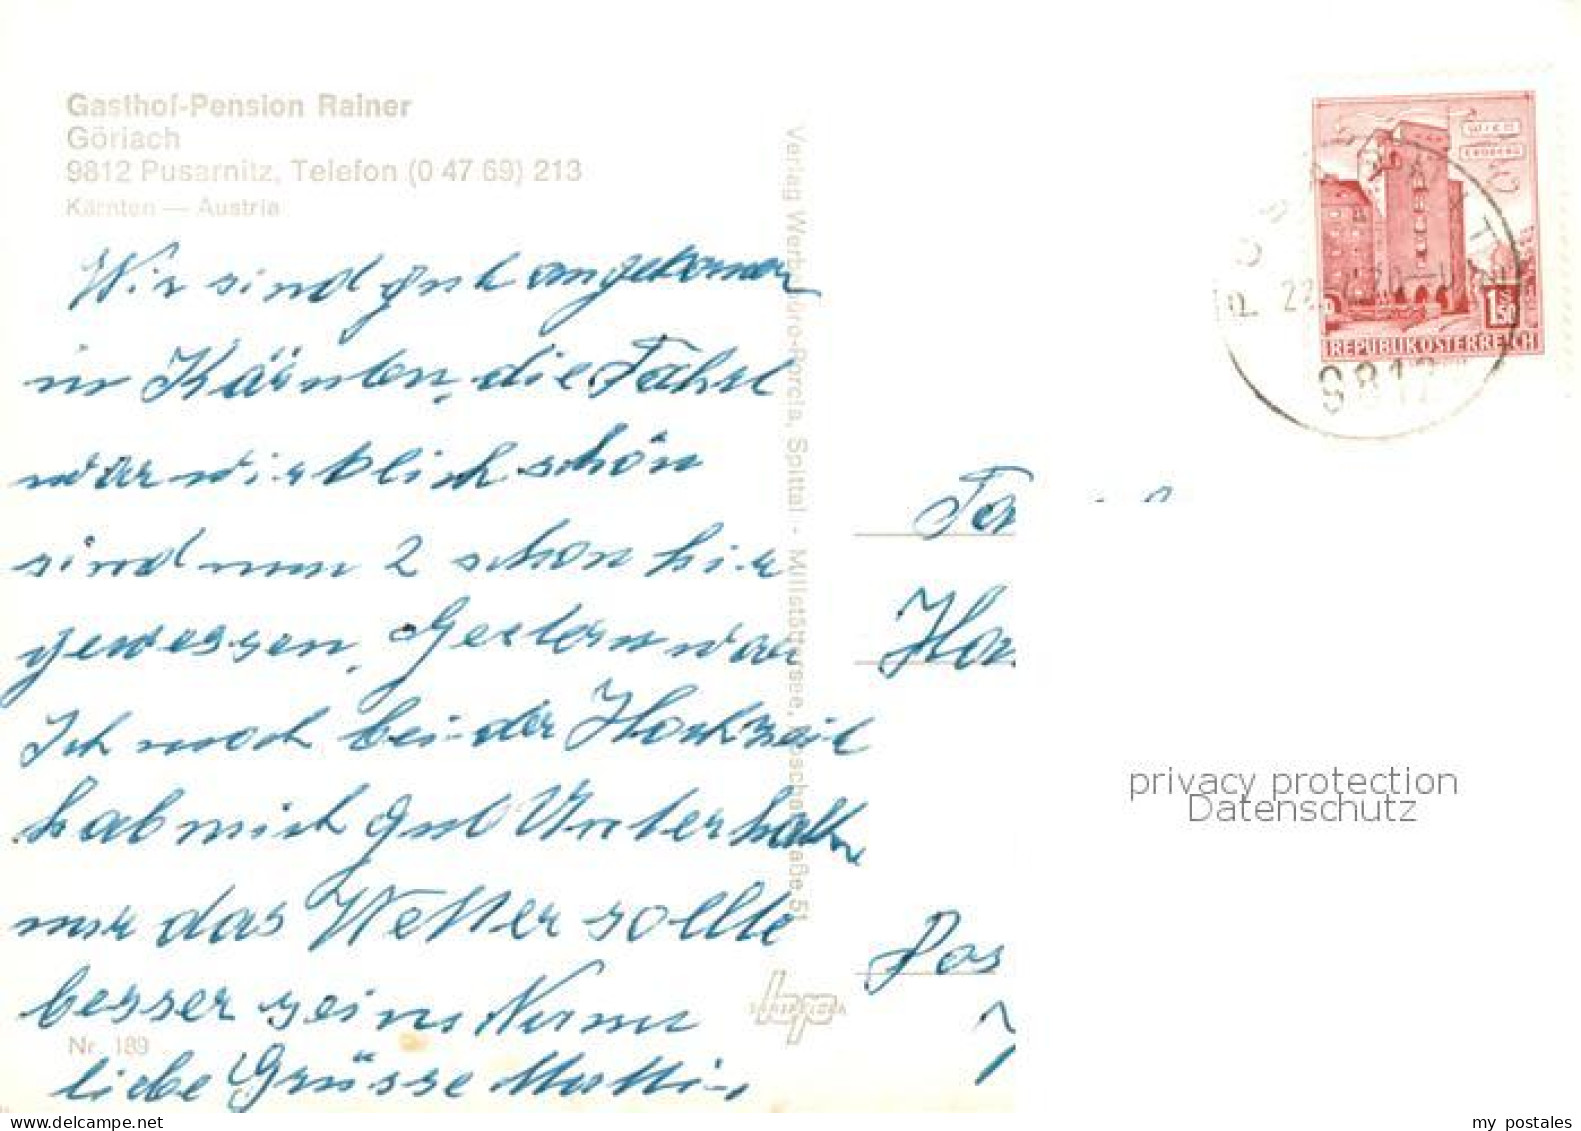 Gasthof-Pension Rainer
Göriach
9812 Pusarnitz, Telefon (0 47 69) 213
Kärnten — Austria
Wir sind gut angekommen
in Kärnten, die Fahrt
war wirklich schön
sind nun 2 schon hir
gewessen, Gestern war
Ich noch bei der Hochzeit
hab mich gut Unterhalten
nur das Wetter sollte
besser sein
liebe Grüsse
Nr. 189
Verlag Werbebüro-Porcia, Spittal - Millstättersee,
hp
WIEN
ERDBERG
1.50
REPUBLIK ÖSTERREICH
9812
privacy protection
Datenschutz
delcampe.net
my postales